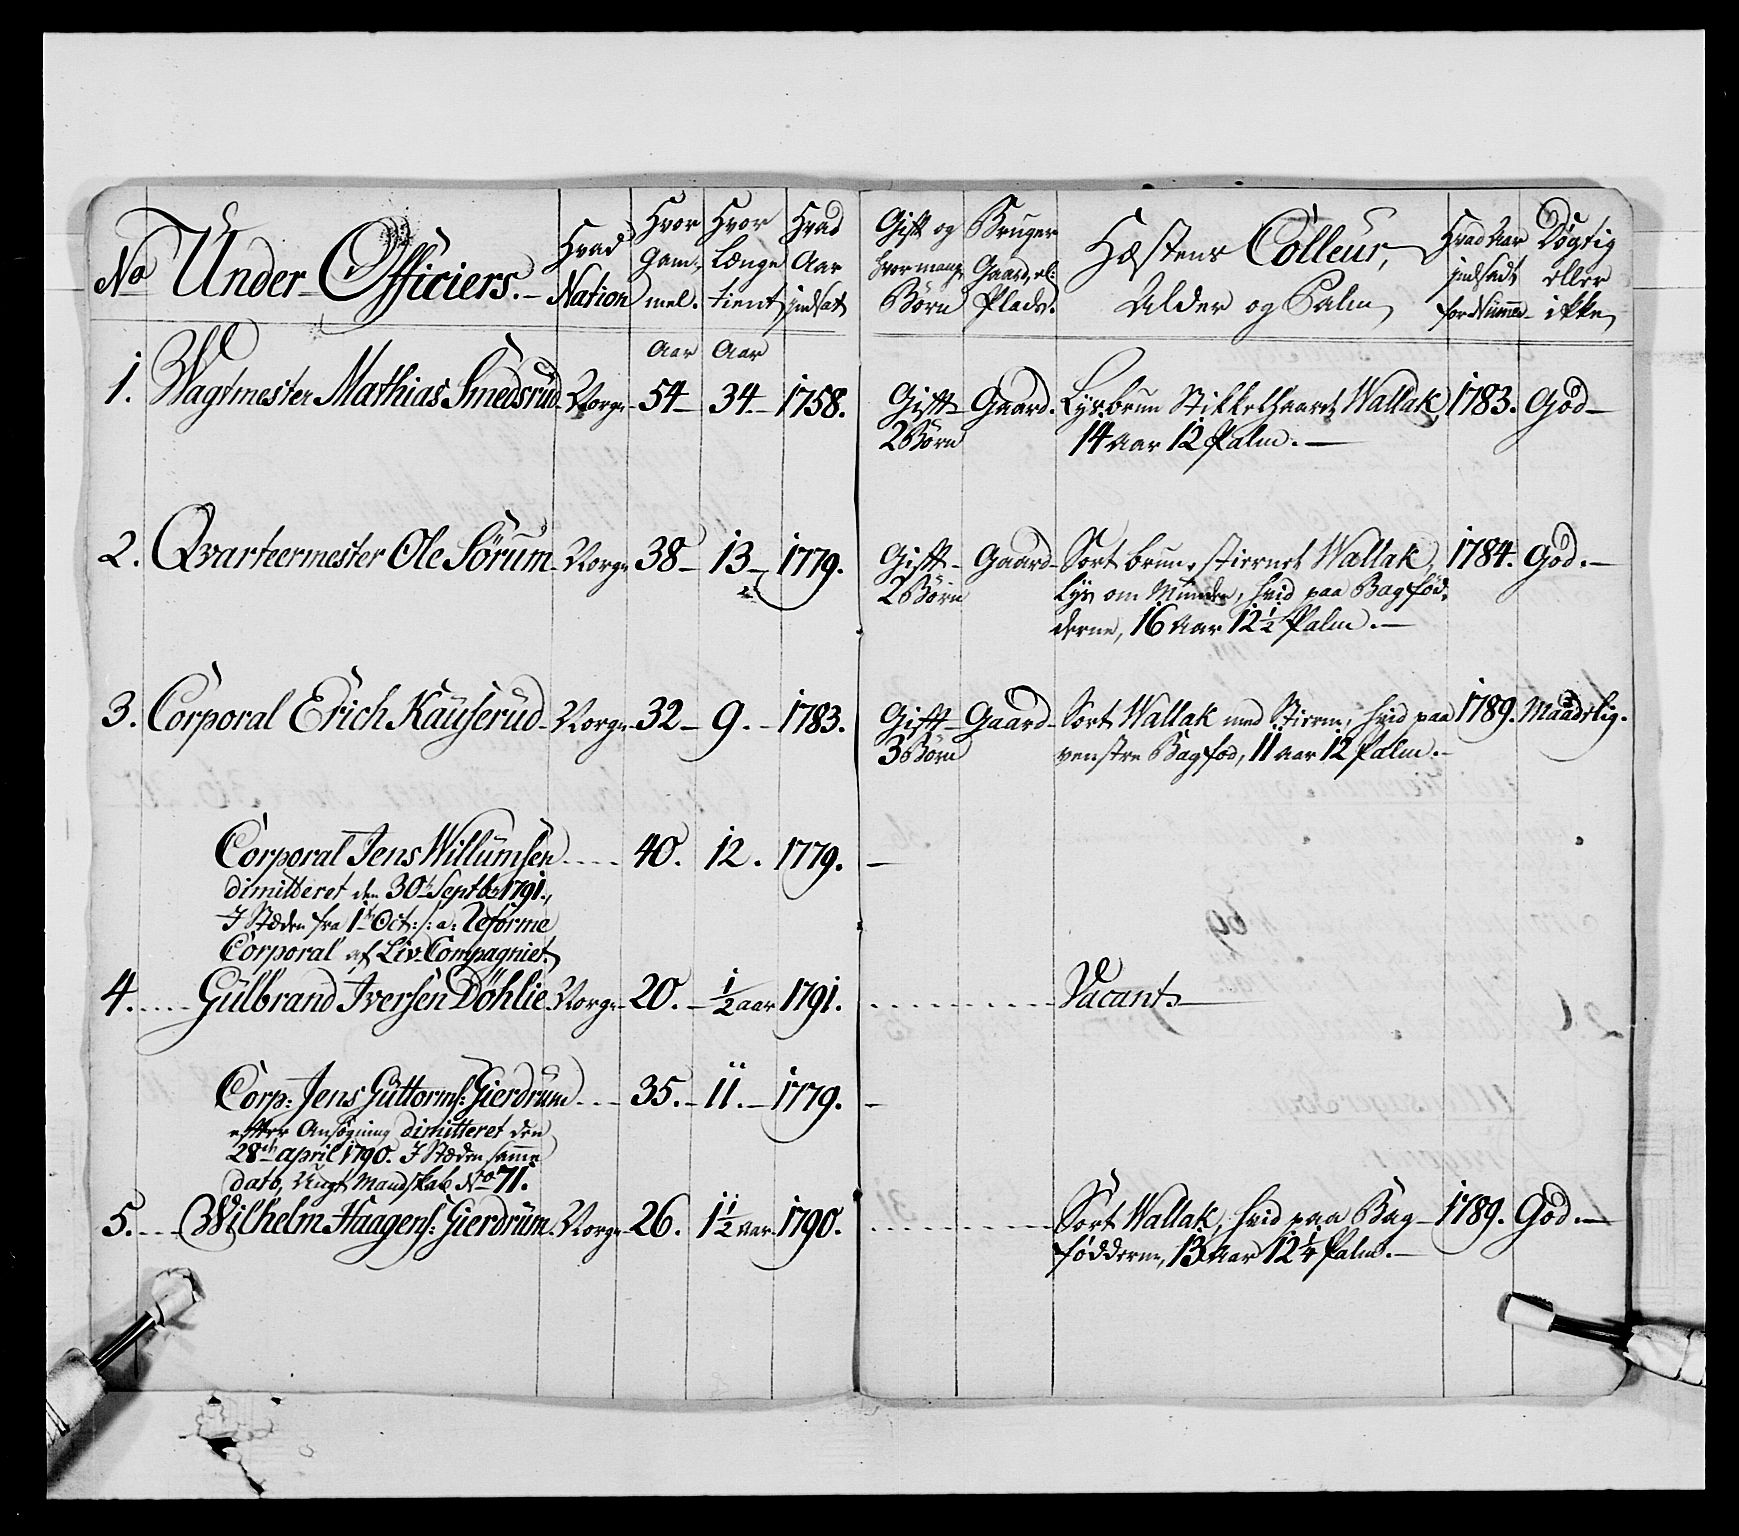 No Under-Officiers.-
Hvad Nation
Hvor Gam- mel.
Hvor Længe tient
Hvad Aar indsat
Gift og hvormange Børn
Bruger Gaard, el: Plads.
Hæstens Colleur, Alder og Palm
Hvad Aar indsadt for Numme-
Døgtig eller ikke
Aar Aar
1. Wagtmester Mathias Smedsrud Norge 54- 34.- 1758. Gift- Gaard. Lysbrun Stikkelhaaret Wallak, 1783. God-
2 Børn 14 Aar 12 Palm.-
2. Qvarteermester Ole Sörum Norge 38- 13- 1779. Gift- Gaard- Sort brun, stiernet Wallak, 1784. God.-
2 Børn Lys om Munden, hvid paa Bagfød-
derne, 16 Aar 12½ Palm.-
3. Corporal Erich Kauserud- Norge- 32- 9.- 1783. Gift- Gaard- Sort Wallak med Stierne, hvid paa 1789. Maadelig.
3 Børn venstre Bagfod, 11 Aar 12 Palm.-
Corporal Jens Willumsen .... 40. 12. 1779. -
dimitteret den 30te Septbr 1791,
I Stæden fra 1te Oct: s: a: Reforme
Corporal af Liv-Compagniet
4. .... Gulbrand Iversen Döhlie Norge- 20.- ½ aar 1791. ........ Vacant-
Corp: Jens Guttorms: Gierdrum ... 35.- 11.- 1779. -
efter Ansøgning dimitteret den
28de april 1790. I Stæden samme
dato, Ungt Mandskab No 71.
5. ... Wilhelm Haagens: Gierdrum. Norge- 26. 1½ Aar- 1790. ........ Sort Wallak, hvid paa Bag- 1789. God.-
fødderne, 13 Aar 12¼ Palm.-